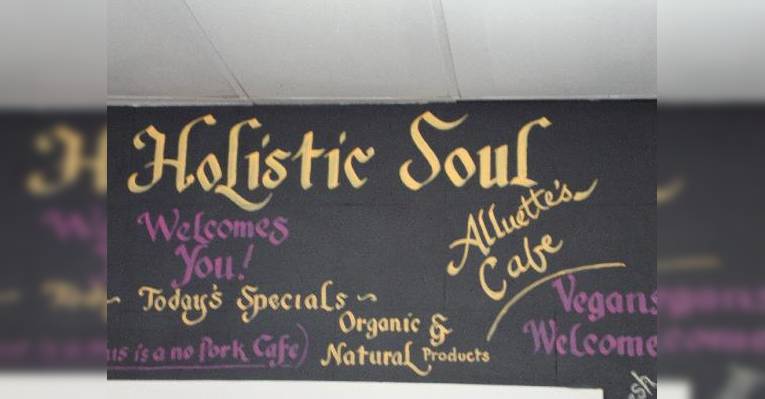 Holistic Soul
Welcomes
You!
Alluette's
Cafe
~ Today's Specials ~
Organic &
Natural Products
is a no Pork Cafe)
Vegans
Welcome